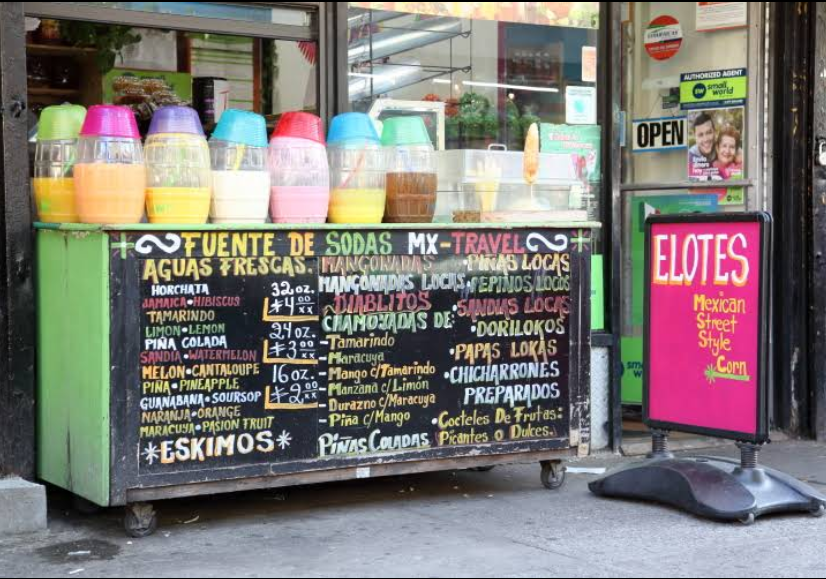 FUENTE DE SODAS MX-TRAVEL
AGUAS FRESCAS.
HORCHATA
JAMAICA•HIBISCUS
TAMARINDO
LIMON•LEMON
PIÑA COLADA
SANDIA•WATERMELON
MELON•CANTALOUPE
PIÑA•PINEAPPLE
GUANABANA•SOURSOP
NARANJA•ORANGE
MARACUYA•PASION FRUIT
*ESKIMOS*
32 oz.
$4.00
24 oz.
$3.00
16 oz.
$2.00
MANGONADAS
MANGONADAS LOCAS
DIABLITOS
CHAMOYADAS DE:
-Tamarindo
-Maracuya
-Mango c/Tamarindo
-Manzana c/Limón
-Durazno c/Maracuya
-Piña c/Mango
PIÑAS COLADAS
•PIÑAS LOCAS
•PEPINOS LOCOS
•SANDIAS LOCAS
•DORILOKOS
•PAPAS LOKAS
•CHICHARRONES
PREPARADOS
•Cocteles De Frutas:
Picantes o Dulces.
AUTHORIZED AGENT
small world
OPEN
ELOTES
Mexican
Street
Style
Corn